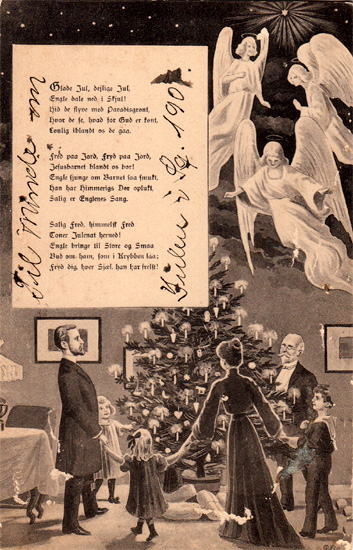 Glade Jul, dejlige Jul,
Engle dale ned i Skjul!
Hid de flyve med Paradisgrønt,
Hvor de se, hvad for Gud er kønt,
Lønlig iblandt os de gaa.
Fred paa Jord, Fryd paa Jord,
Jesusbarnet blandt os bor!
Engle sjunge om Barnet saa smukt,
Han har Himmerigs Dør oplukt,
Salig er Englenes Sang.
Salig Fred, himmelsk Fred
Toner Julenat herned!
Engle bringe til Store og Smaa
Bud om ham, som i Krybben laa;
Fryd dig, hver Sjæl, han har frelst!
Til
Julen